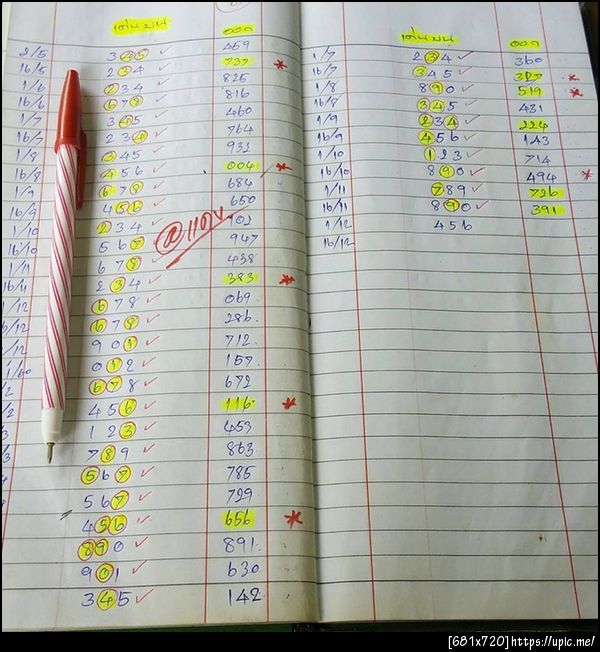 เด่นบน ออก
2/5 345 ✓ 459
16/5 234 ✓ 737 *
1/6 234 825
16/6 678 ✓ 816
1/7 345 ✓ 460
16/7 234 ✓ 764
1/8 345 ✓ 932
16/8 456 ✓ 004 *
1/9 678 ✓ 684
16/9 456 ✓ 650
1/10 234 ✓
16/10 567 947
1/11 678 ✓ 438
16/11 234 ✓ 383 *
1/12 678 ✓ 069
16/12 678 ✓ 286
901 ✓ 712
012 ✓ 157
678 ✓ 672
456 ✓ 116 *
123 ✓ 453
789 ✓ 863
567 ✓ 785
567 ✓ 729
456 ✓ 656 *
890 ✓ 891
901 ✓ 630
345 ✓ 142
เด่นบน ออก
1/7 234 ✓ 360
16/7 345 ✓ 327 *
1/8 890 ✓ 519 *
16/8 345 ✓ 431
1/9 234 ✓ 224
16/9 456 ✓ 143
1/10 123 ✓ 714
16/10 890 ✓ 494 *
1/11 789 ✓ 726
16/11 890 ✓ 391
1/12 456
16/12
[681x720]https://upic.me/